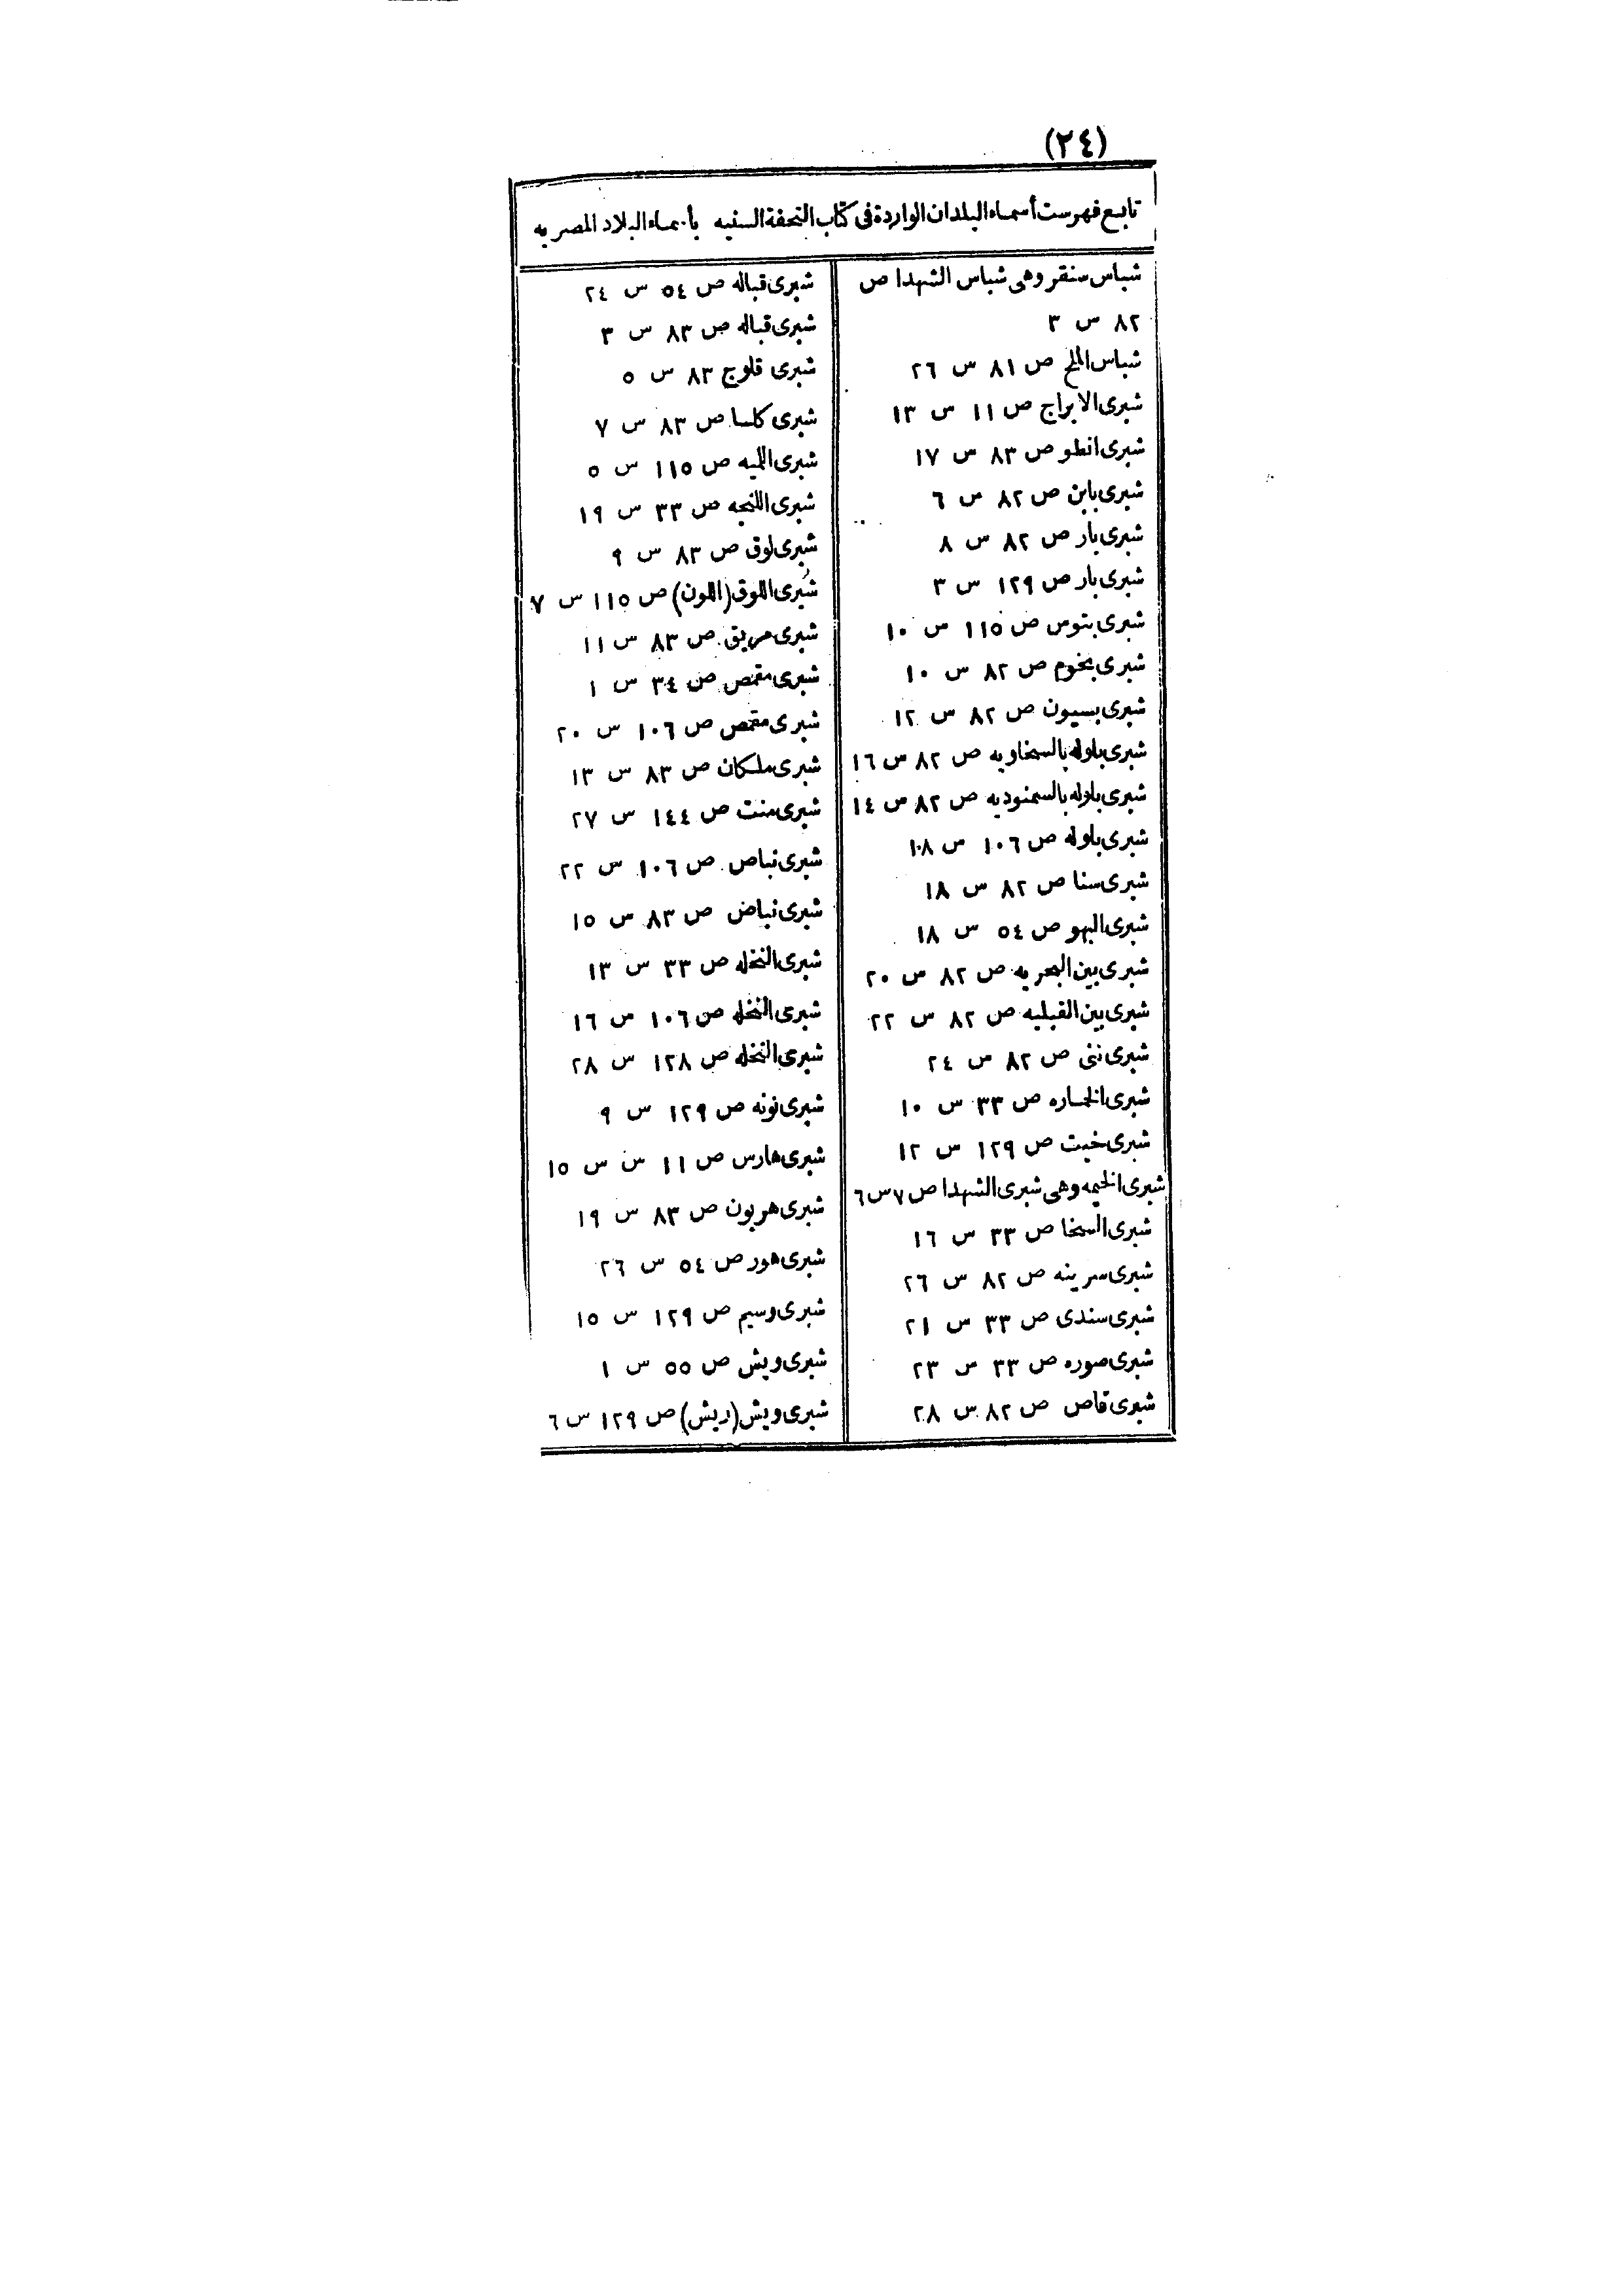 (٢٤)
تابع فهرست أسماء البلدان الواردة فى كتاب التحفة السنيه بأسماء البلاد المصريه
شباس سنقر وهى شباس الشهدا ص
٨٢ س ٣
شباس الملح ص ٨١ س ٢٦
شبرى الابراج ص ١١ س ١٣
شبرى انطو ص ٨٣ س ١٧
شبرى بابن ص ٨٢ س ٦
شبرى بار ص ٨٢ س ٨
شبرى بار ص ١٢٩ س ٣
شبرى بتوس ص ١١٥ س ١٠
شبرى بخوم ص ٨٢ س ١٠
شبرى بسيون ص ٨٢ س ١٢
شبرى بلوله بالسخاويه ص ٨٢ س ١٦
شبرى بلوله بالسمنوديه ص ٨٢ س ١٤
شبرى بلوله ص ١٠٦ س ١٨
شبرى سنا ص ٨٢ س ١٨
شبرى البهو ص ٥٤ س ١٨
شبرى بين البحريه ص ٨٢ س ٢٠
شبرى بين القبليه ص ٨٢ س ٢٢
شبرى تنى ص ٨٢ س ٢٤
شبرى الخماره ص ٣٣ س ١٠
شبرى خيت ص ١٢٩ س ١٢
شبرى الخيمه وهى شبرى الشهدا ص ٧ س ٦
شبرى السخا ص ٣٣ س ١٦
شبرى سرينه ص ٨٢ س ٢٦
شبرى سندى ص ٣٣ س ٢١
شبرى صوره ص ٣٣ س ٢٣
شبرى قاص ص ٨٢ س ٢٨
شبرى قباله ص ٥٤ س ٢٤
شبرى قباله ص ٨٣ س ٣
شبرى قلوج ٨٣ س ٥
شبرى كلسا ص ٨٣ س ٧
شبرى الليه ص ١١٥ س ٥
شبرى اللنجه ص ٣٣ س ١٩
شبرى لوق ص ٨٣ س ٩
شبرى اللوق (اللون) ص ١١٥ س ٧
شبرى مريق ص ٨٣ س ١١
شبرى مقمص ص ٣٤ س ١
شبرى مقمص ص ١٠٦ س ٢٠
شبرى ملكان ص ٨٣ س ١٣
شبرى منت ص ١٤٤ س ٢٧
شبرى نباص ص ١٠٦ س ٢٢
شبرى نباض ص ٨٣ س ١٥
شبرى النخله ص ٣٣ س ١٣
شبرى النخله ص ١٠٦ س ١٦
شبرى النخله ص ١٢٨ س ٢٨
شبرى نونه ص ١٢٩ س ٩
شبرى هارس ص ١١ س س ١٥
شبرى هربون ص ٨٣ س ١٩
شبرى هور ص ٥٤ س ٢٦
شبرى وسيم ص ١٢٩ س ١٥
شبرى ويش ص ٥٥ س ١
شبرى ويش (ريش) ص ١٢٩ س ٦